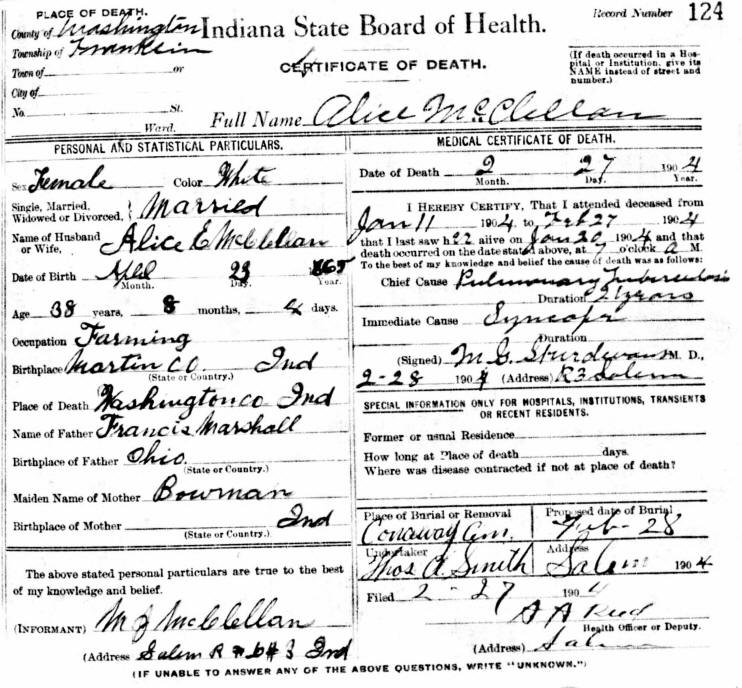 PLACE OF DEATH.
County of Washington
Township of Franklin
Town of or
City of
No. St.
Ward.
Indiana State Board of Health.
CERTIFICATE OF DEATH.
Record Number 124
(If death occurred in a Hos-
pital or Institution, give its
NAME instead of street and
number.)
Full Name Alice McClellan
PERSONAL AND STATISTICAL PARTICULARS.
Sex Female Color White
Single, Married,
Widowed or Divorced, Married
Name of Husband
or Wife, Alice E McClellan
Date of Birth 23 1865
Month. Day. Year.
Age 38 years, 8 months, 4 days.
Occupation Farming
Birthplace Martin Co. Ind
(State or Country.)
Place of Death Washington co Ind
Name of Father Francis Marshall
Birthplace of Father Ohio.
(State or Country.)
Maiden Name of Mother Bowman
Birthplace of Mother Ind
(State or Country.)
The above stated personal particulars are true to the best
of my knowledge and belief.
(INFORMANT) M J McClellan
(Address Salem R 3 Ind
MEDICAL CERTIFICATE OF DEATH.
Date of Death 2 27 1904
Month. Day. Year.
I HEREBY CERTIFY, That I attended deceased from
Jan 11 1904 to Feb 27 1904
that I last saw her alive on Jan 20 1904 and that
death occurred on the date stated above, at 7 o'clock a M.
To the best of my knowledge and belief the cause of death was as follows:
Chief Cause Pulmonary Tuberculosis
Duration 2 years
Immediate Cause Syncope
Duration
(Signed) M. S. Sturdivant M. D.,
2-28 1904 (Address) R3 Salem
SPECIAL INFORMATION ONLY FOR HOSPITALS, INSTITUTIONS, TRANSIENTS
OR RECENT RESIDENTS.
Former or usual Residence
How long at Place of death days.
Where was disease contracted if not at place of death?
Place of Burial or Removal
Conaway Cem.
Proposed date of Burial
Feb - 28
Undertaker
Thos A Smith
Address
Salem 1904
Filed 2 - 27 1904
S A Reid
Health Officer or Deputy.
(Address) Salem
(IF UNABLE TO ANSWER ANY OF THE ABOVE QUESTIONS, WRITE "UNKNOWN.")